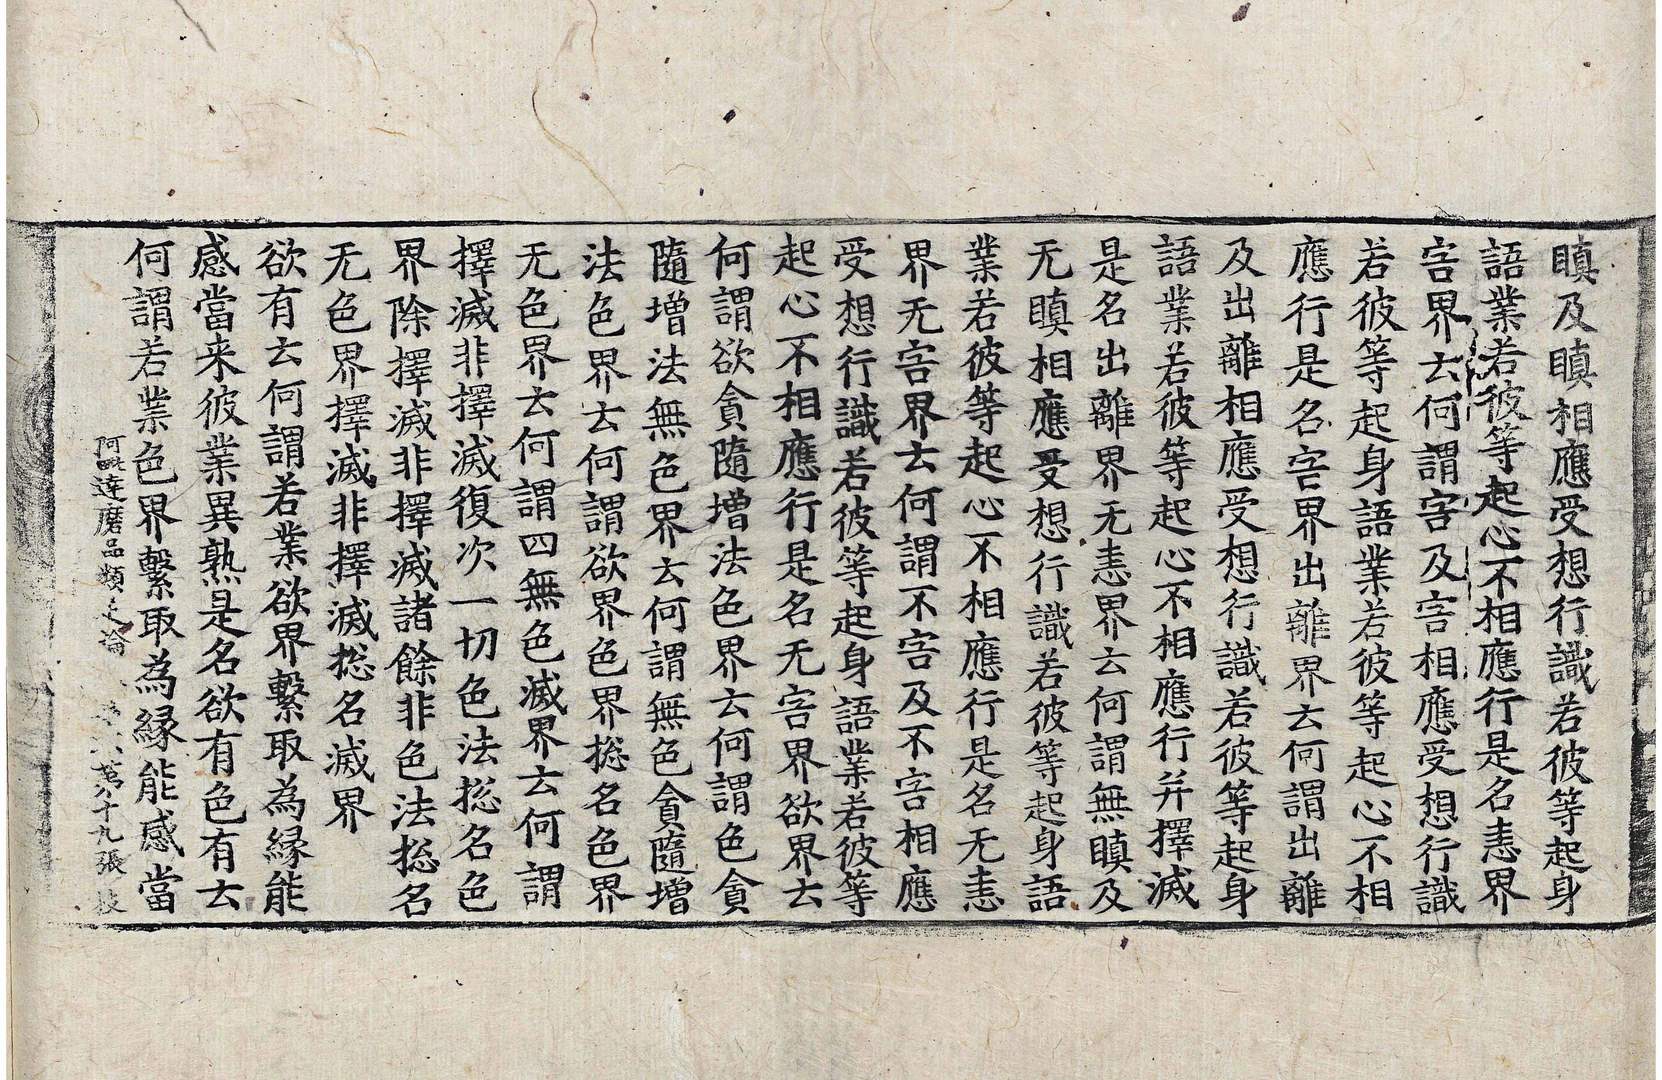 瞋及瞋相應受想行識若彼等起身
語業若彼等起心不相應行是名恚界
害界云何謂害及害相應受想行識
若彼等起身語業若彼等起心不相
應行是名害界出離界云何謂出離
及出離相應受想行識若彼等起身
語業若彼等起心不相應行并擇滅
是名出離界无恚界云何謂無瞋及
无瞋相應受想行識若彼等起身語
業若彼等起心不相應行是名无恚
界无害界云何謂不害及不害相應
受想行識若彼等起身語業若彼等
起心不相應行是名无害界欲界云
何謂欲貪隨增法色界云何謂色貪
隨增法無色界云何謂無色貪隨增
法色界云何謂欲界色界揔名色界
无色界云何謂四無色滅界云何謂
擇滅非擇滅復次一切色法揔名色
界除擇滅非擇滅諸餘非色法揔名
无色界擇滅非擇滅揔名滅界
欲有云何謂若業欲界繫取為緣能
感當来彼業異熟是名欲有色有云
何謂若業色界繫取為緣能感當
阿毗達磨品類足論 六 第十九張